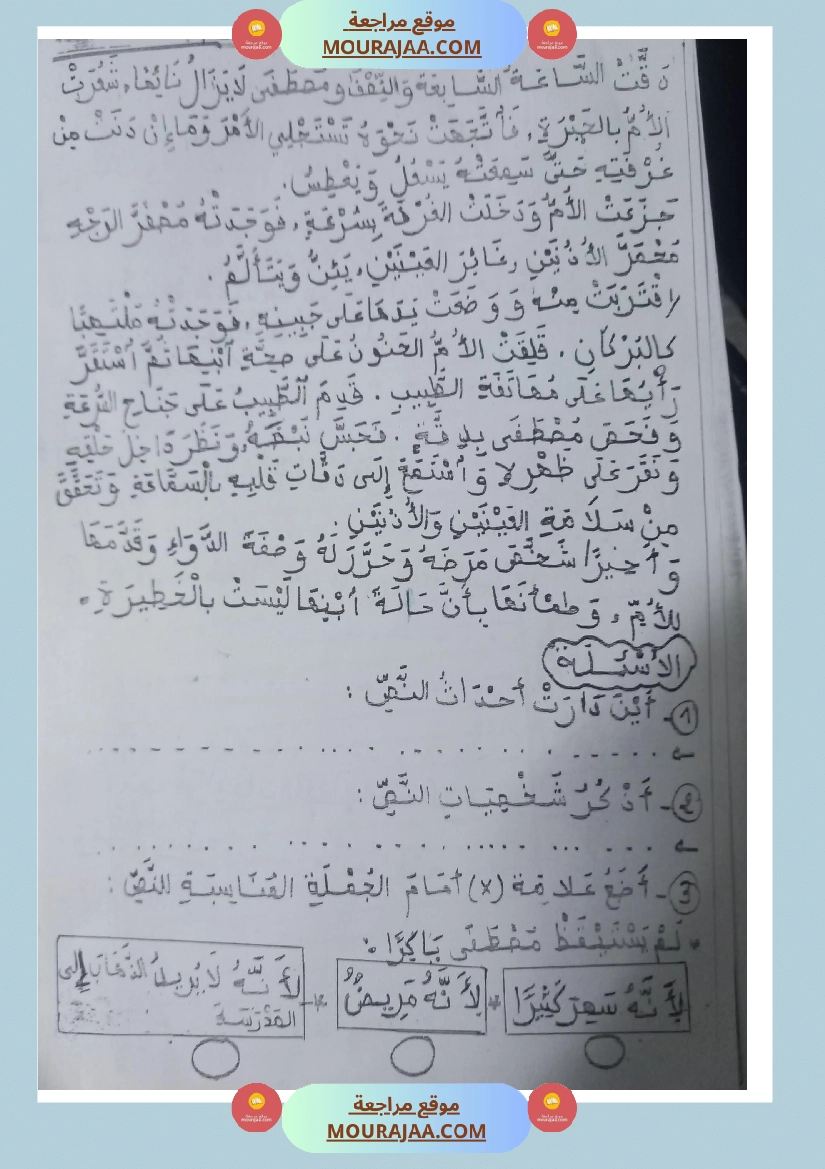 موقع مراجعة
MOURAJAA.COM
دَقَّتْ السَّاعَةُ السَّابِعَة وَالنِّصْفَ ومُصْطَفَى لَا يَزَالُ نَائِمًا، شَعُرَتْ
الأُمُّ بالحَيْرَةِ، فَاتَّجَهَتْ نَحْوَهُ تَسْتَجْلِي الأَمْرَ وَمَا إِنْ دَنَتْ مِنْ
غُرْفَتِهِ حَتَّى سَمِعَتْهُ يَسْعُلُ وَيَعْطِسُ.
جَزِعَتْ الأُمُّ وَدَخَلَتْ الغُرْفَةَ بِسُرْعَةٍ، فَوَجَدَتْهُ مُصْفَرَّ الوَجْهِ
مُحْمَرَّ الأُذُنَيْنِ، غَائِرَ العَيْنَيْنِ، يَئِنُّ وَيَتَأَلَّمُ.
اقْتَرَبَتْ مِنْهُ وَوَضَعَتْ يَدَهَا عَلَى جَبِينِهِ، فَوَجَدَتْهُ مُلْتَهِبًا
كالبُرْكَانِ. قَلِقَتْ الأُمُّ الحَنُونُ عَلَى صِحَّةِ ابْنِهَا ثُمَّ اسْتَقَرَّ
رَأْيُهَا عَلَى مُهَاتَفَةِ الطَّبِيبِ. قَدِمَ الطَّبِيبُ عَلَى جَنَاحِ السُّرْعَةِ
وَفَحَصَ مُصْطَفَى بِدِقَّةٍ. فَجَسَّ نَبْضَهُ، وَنَظَرَ دَاخِلَ حَلْقِهِ
وَنَقَرَ عَلَى ظَهْرِهِ وَاسْتَمَعَ إِلَى دَقَّاتِ قَلْبِهِ بِالسَّمَّاعَةِ وَتَحَقَّقَ
مِنْ سَلَامَةِ العَيْنَيْنِ وَالأُذُنَيْنِ.
وَأَخِيرًا شَخَّصَ مَرَضَهُ وَحَرَّرَ لَهُ وَصْفَةَ الدَّوَاءِ وَقَدَّمَهَا
لِلأُمِّ، وَطَمْأَنَهَا بِأَنَّ حَالَةَ ابْنِهَا لَيْسَتْ بالْخَطِيرَةِ.
الأَسْئِلَة
1- أَيْنَ دَارَتْ أَحْدَاثُ النَّصِّ :
2- أَذْكُرُ شَخْصِيَاتِ النَّصِّ :
3- أَضَعُ عَلَامَة (x) أَمَامَ الجُمْلَةِ المُنَاسِبَةِ للنَّصِّ :
• لَمْ يَسْتَيْقِظْ مُصْطَفَى بَاكِرًا :
لِأَنَّهُ سَهِرَ كَثِيرًا * لِأَنَّهُ مَرِيضٌ * لِأَنَّهُ لَا يُرِيدُ الذَّهَابَ إِلَى
المَدْرَسَةَ
موقع مراجعة
MOURAJAA.COM